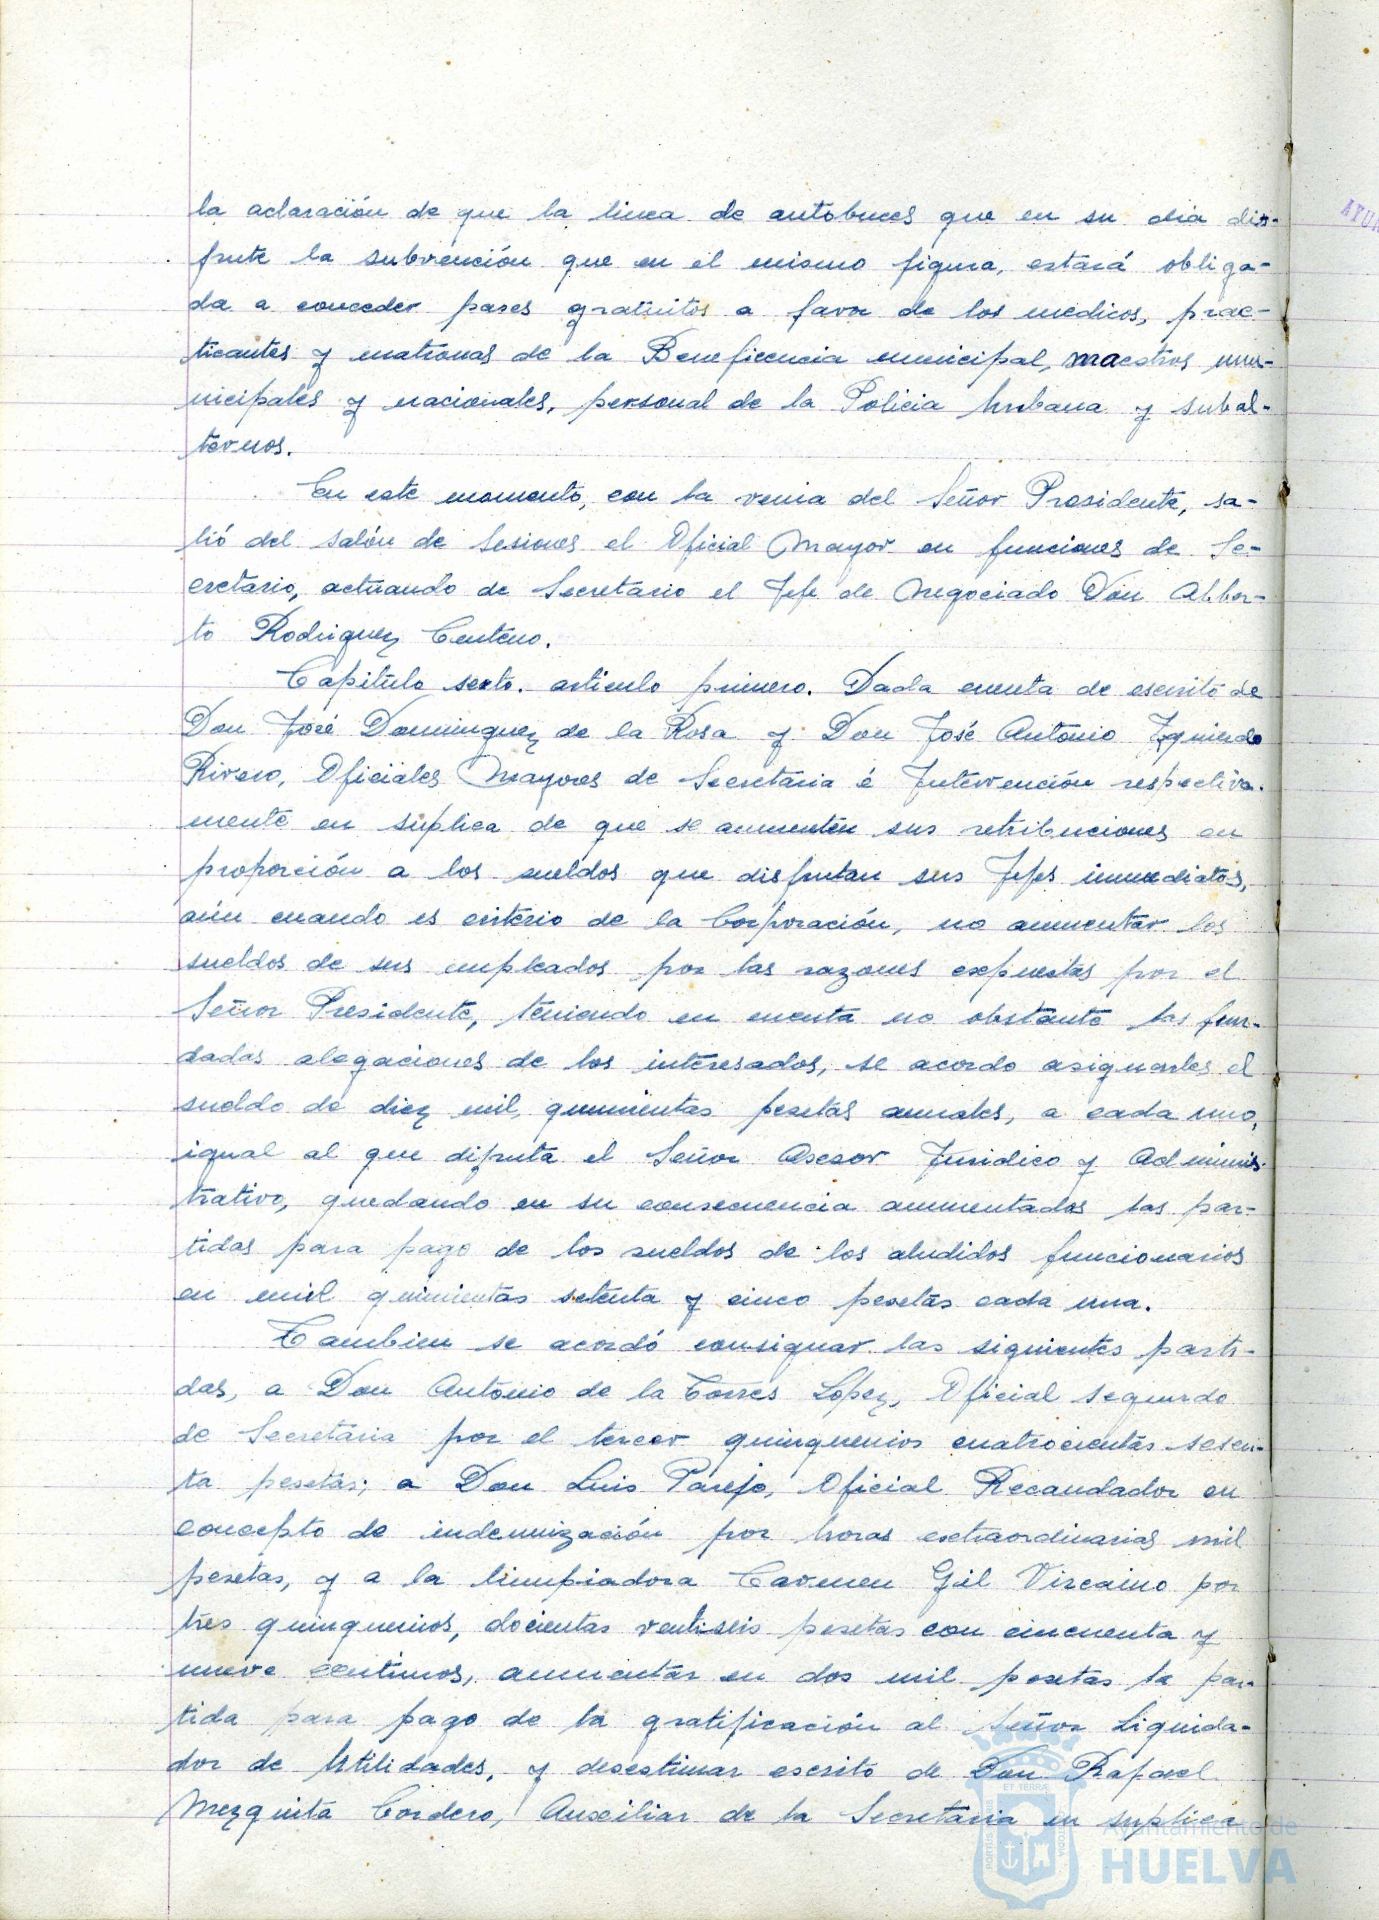 la aclaración de que la linea de autobuces que en su dia dis-
frute la subvención que en el mismo figura, estará obliga-
da a conceder pases gratuitos a favor de los medicos, prac-
ticantes y matronas de la Beneficencia municipal, maestros mu-
nicipales y nacionales, personal de la Policia Urbana y subal-
ternos.
En este momento, con la venia del Señor Presidente, sa-
lió del salón de Sesiones el Oficial Mayor en funciones de Se-
cretario, actuando de Secretario el Jefe de Negociado Don Alber-
to Rodriguez Centeno.
Capitulo sexto. articulo primero. Dada cuenta de escrito de
Don José Dominguez de la Rosa y Don José Antonio Izquierdo
Rivero, Oficiales Mayores de Secretaria é Intervención respectiva-
mente en súplica de que se aumenten sus retribuciones en
proporción a los sueldos que disfrutan sus Jefes inmediatos,
aún cuando es criterio de la Corporación, no aumentar los
sueldos de sus empleados por las razones expuestas por el
Señor Presidente, teniendo en cuenta no obstante las fun-
dadas alegaciones de los interesados, se acordo asignarles el
sueldo de diez mil quinientas pesetas anuales, a cada uno,
igual al que difruta el Señor Asesor Juridico y Adminis-
trativo, quedando en su consecuencia aumentados las par-
tidas para pago de los sueldos de los aludidos funcionarios
en mil quinientas setenta y cinco pesetas cada una.
Tambien se acordó consignar las siguientes parti-
das, a Don Antonio de la Torres López, Oficial segundo
de Secretaria por el tercer quinquenios cuatrocientas sesen-
ta pesetas; a Don Luis Parejo, Oficial Recaudador en
concepto de indemnización por horas extraordinarias mil
pesetas, y a la limpiadora Carmen Gil Vizcaino por
tres quinquenios, docientas ventiseis pesetas con cincuenta y
nueve centimos, aumentar en dos mil pesetas la par-
tida para pago de la gratificación al Señor Liquida-
dor de Utilidades, y desestimar escrito de Don Rafael
Mezquita Cordero, Auxiliar de la Secretaria en suplica
Ayuntamiento de
HUELVA